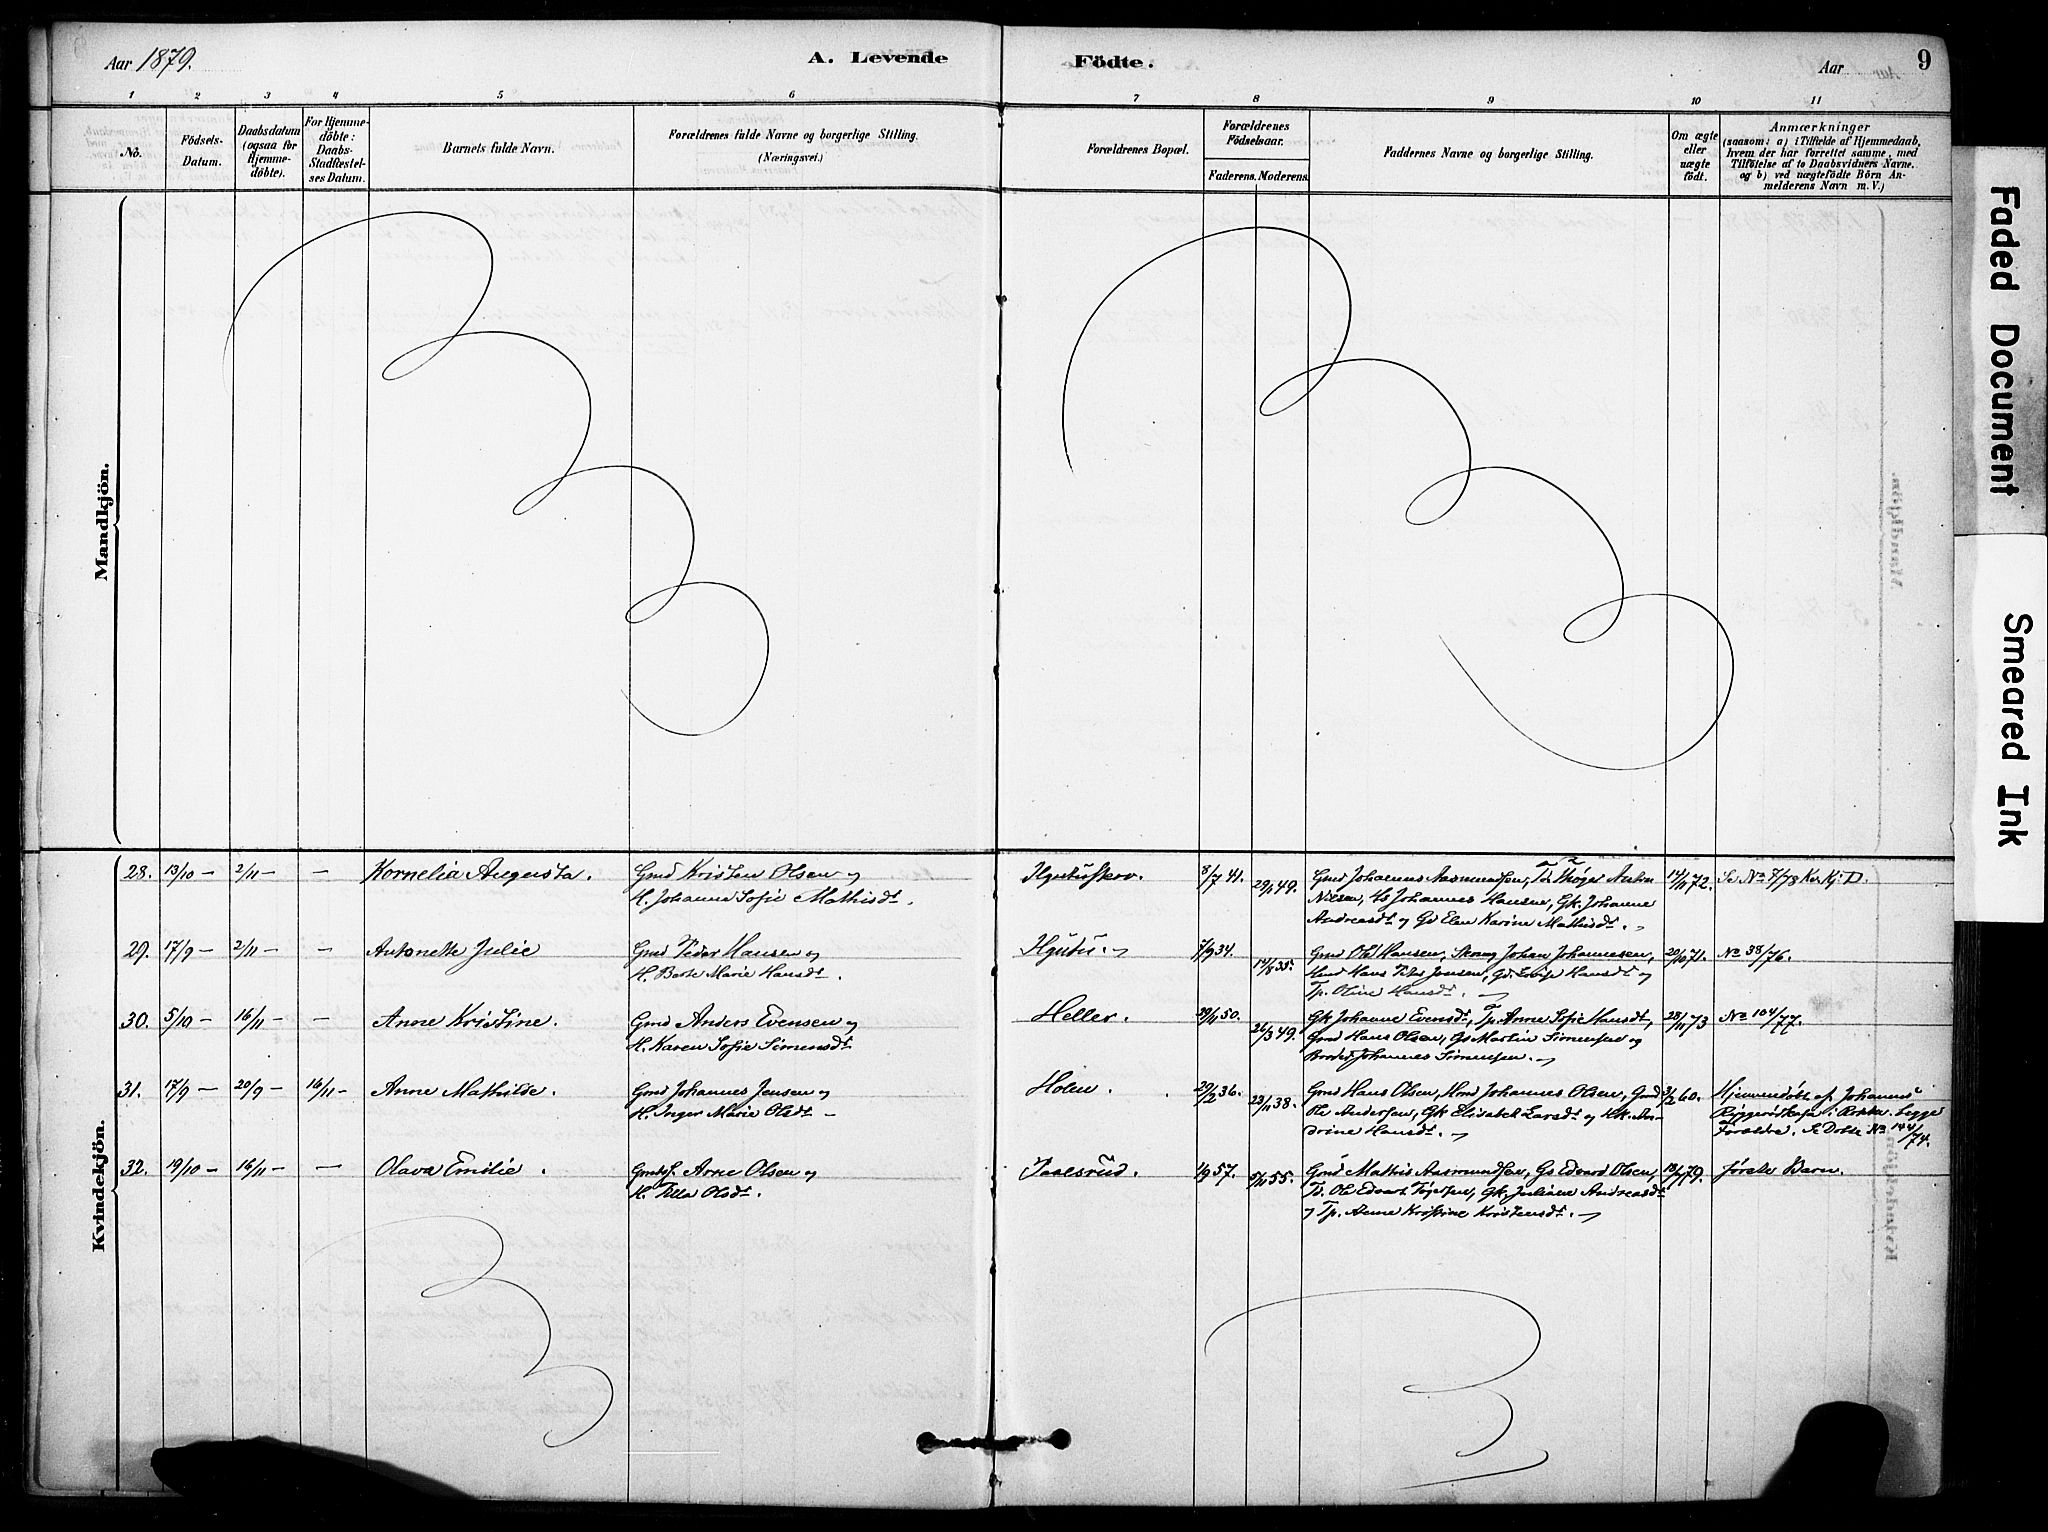 Aar 1879.
A. Levende
Födte.
Aar
9
1 2 3 4 5 6 7 8 9 10 11
No.
Födsels-
Datum.
Daabsdatum
(ogsaa for
Hjemme-
döbte).
For Hjemme-
döbte:
Daabs-
Stadfestel-
ses Datum.
Barnets fulde Navn.
Forældrenes fulde Navne og borgerlige Stilling.
(Næringsvei.)
Forældrenes Bopæl.
Forældrenes
Födselsaar.
Faderens. Moderens.
Faddernes Navne og borgerlige Stilling.
Om ægte
eller
uægte
födt.
Anmærkninger
(saasom: a) i Tilfælde af Hjemmedaab,
hvem der har forrettet samme, med
Tilföielse af to Daabsvidners Navne.
og b) ved uægtefödte Börn An-
melderens Navn m. V.)
Mandkjön.
Kvindekjön.
28. 13/10 — 2/11 — — Kornelia Augusta. Gmd Kristen Olsen og
H. Johanne Sofie Mathisdt.
8/7 41. 29/1 49. Gmd Johannes Aasmundsen, Anton
Nilsen, Johannes Hansen, Gk. Johanne
Andreasdt og Elen Karine Mathisdt.
14/11 72. Se No 7/78
29. 17/9 — 2/11 — — Antonette Julie Gmd Peder Hansen og
H. Berte Marie Hansdt.
7/9 34. 14/8 35. Gmd Ole Hansen, Johan Johannesen,
Hans Jensen, Hansdt og
Tp. Oline Hansdt.
20/10 71. No 38/76.
30. 5/10 — 16/11 — — Anne Kristine. Gmd Anders Evensen og
H. Karen Sofie Simensdt
Heller. 29/11 50. 26/3 49. Gk Johanne Evensdt, Tp. Anne Sofie Hansdt,
Gmd Hans Olsen, Gs Martin Simensen og
Johannes Simensen.
28/11 73 No 104/77.
31. 17/9 — 20/9 — 16/11 — Anne Mathilde. Gmd Johannes Jensen og
H. Inger Marie Olsdt —
Holm. 29/2 36. 23/11 38. Gmd Hans Olsen, Johannes Olsen, Gmd
Ole Andersen, Gk Elisabet Larsdt og An-
drine Hansdt.
3/2 60. Hjemmedöbt af Johannes
i Begge
Forældre. No 144/74.
32. 19/10 — 16/11 — — Olava Emilie. Arne Olsen og
H. Olsdt.
Paalsrud. 1/9 57. 5/11 55. Gmd Mathis Aasmundsen, Gs Edvard Olsen,
Ole Edvart, Gk. Juliane Andreasdt
og Tp. Anne Kristine Kristensdt.
18/7 79. förste Barn.
Faded Document
Smeared Ink